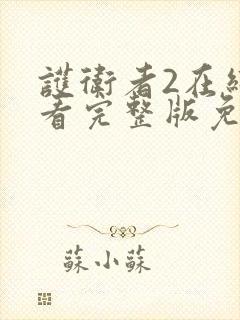 護衛者2在線
看完整版免
蘇小蘇